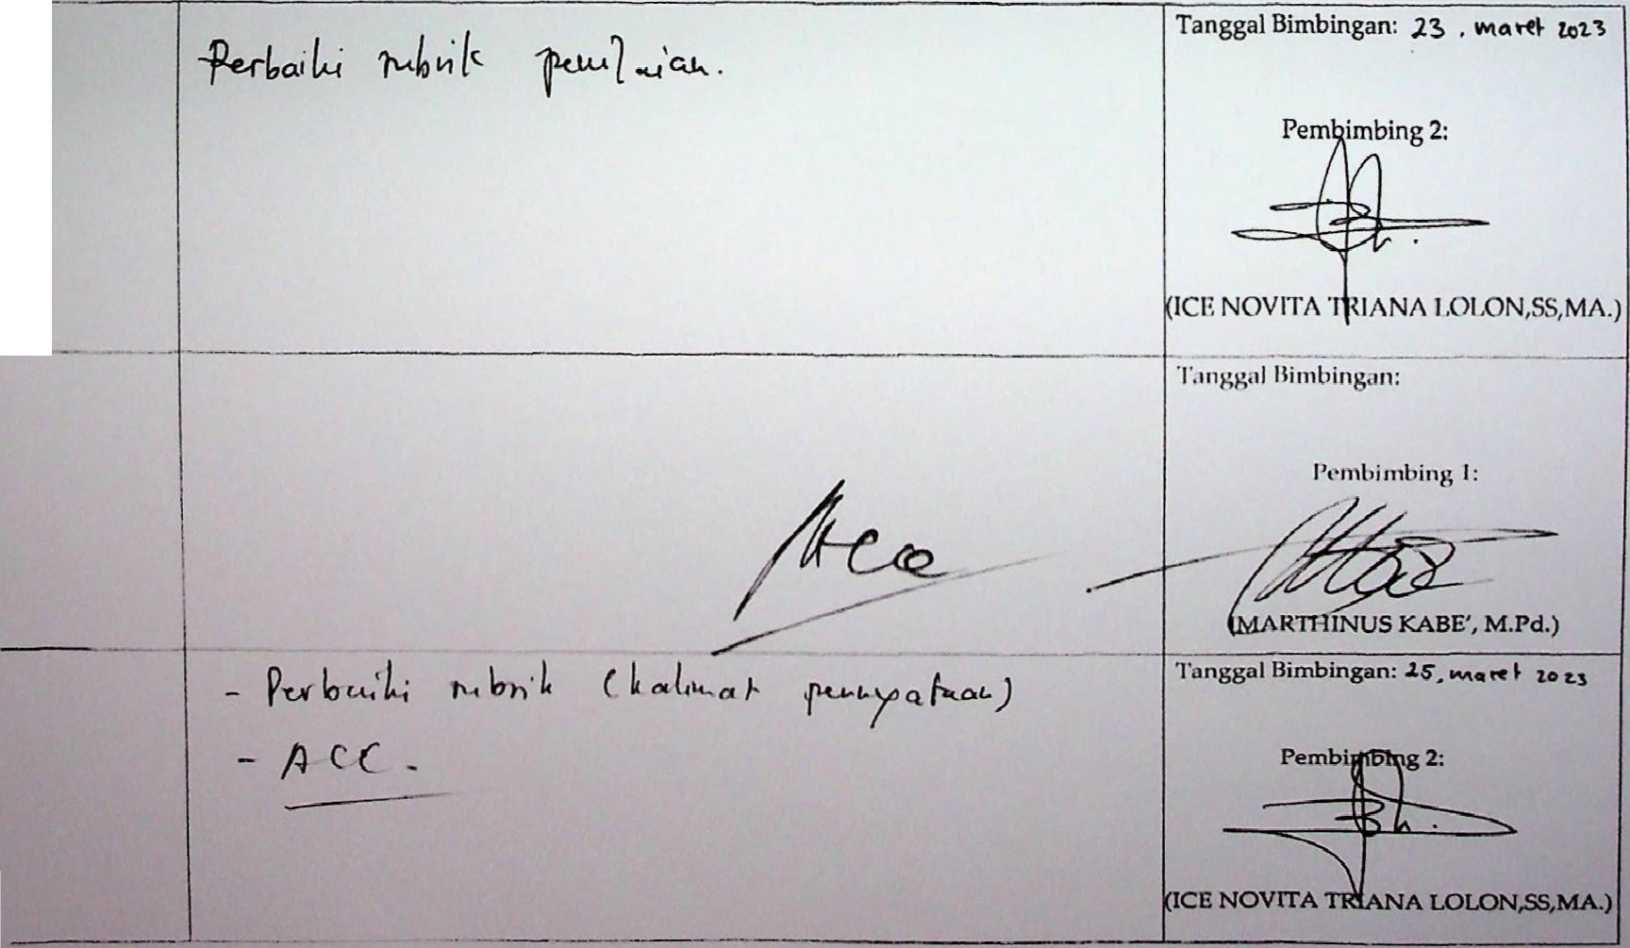 Perbaiki rubrik penilaian.
Tanggal Bimbingan: 23, maret 2023
Pembimbing 2:
(ICE NOVITA TRIANA LOLON,SS,MA.)
Acc
Tanggal Bimbingan:
Pembimbing 1:
(MARTHINUS KABE', M.Pd.)
- Perbaiki rubrik (kalimat pernyataan)
- ACC.
Tanggal Bimbingan: 25, maret 2023
Pembimbing 2:
(ICE NOVITA TRIANA LOLON,SS,MA.)